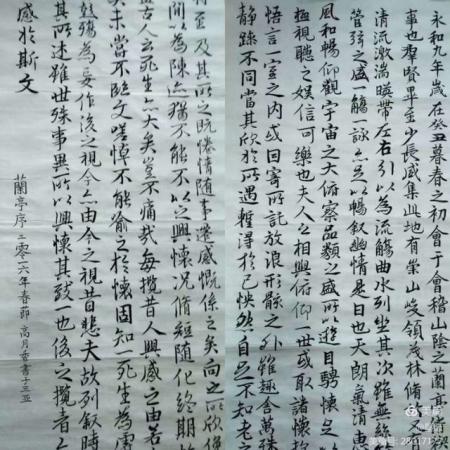 永和九年歲在癸丑暮春之初會于會稽山陰之蘭亭
事也羣賢畢至少長咸集此地有崇山峻領茂林脩竹又有
清流激湍暎帶左右引以為流觴曲水列坐其次雖無絲
管弦之盛一觴一詠亦足以暢叙幽情是日也天朗氣清惠
風和暢仰觀宇宙之大俯察品類之盛所以遊目騁懷足以
極視聽之娛信可樂也夫人之相與俯仰一世或取諸懷抱
悟言一室之內或因寄所託放浪形骸之外雖趣舍萬殊
靜躁不同當其欣於所遇暫得於己怏然自足不知老之
將至及其所之既倦情隨事遷感慨係之矣向之所欣俛
間以為陳迹猶不能不以之興懷況脩短隨化終期於
古人云死生亦大矣豈不痛哉每攬昔人興感之由若
契未嘗不臨文嗟悼不能喻之於懷固知一死生為虛
殤為妄作後之視今亦由今之視昔悲夫故列叙時
其所述雖世殊事異所以興懷其致一也後之攬者
感於斯文
蘭亭序二零一六年春節高月香書于三亞
美篇